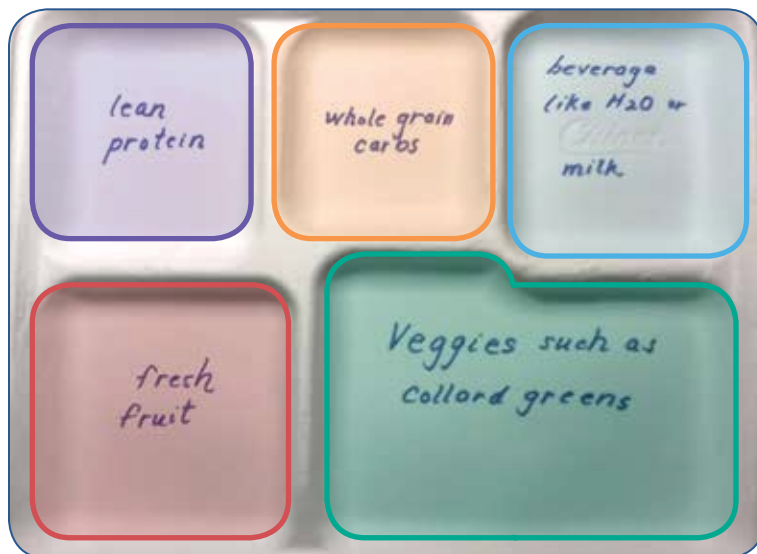 lean
protein
whole grain
carbs
beverage
like H2O or
milk
fresh
fruit
Veggies such as
Collord greens